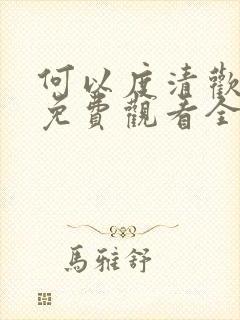 何以度清歡
免費觀看全
馬雅舒